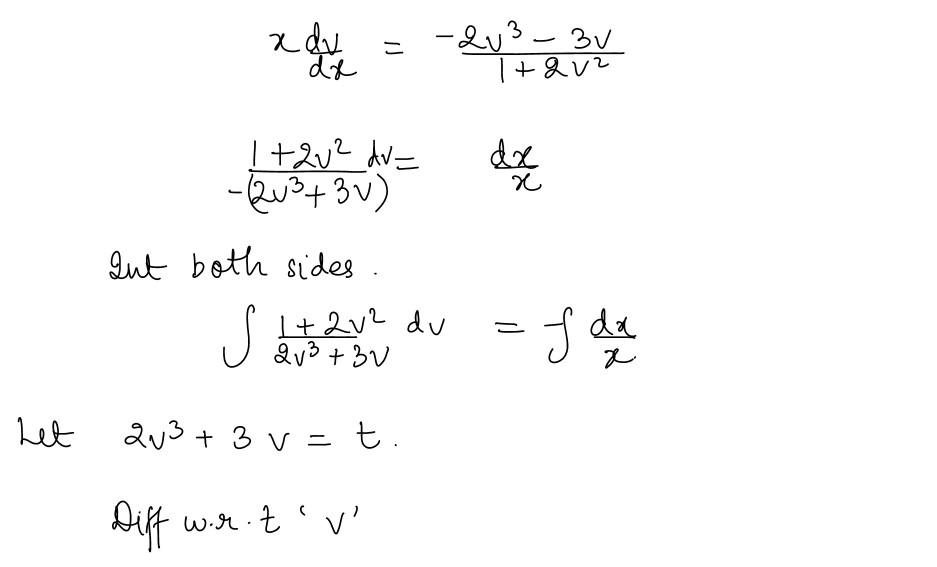 x dv/dx = (-2v³ - 3v)/(1 + 2v²)
(1 + 2v²)/(-(2v³ + 3v)) dv = dx/x
Int both sides.
∫ (1 + 2v²)/(2v³ + 3v) dv = -∫ dx/x
Let 2v³ + 3v = t.
Diff w.r.t 'v'